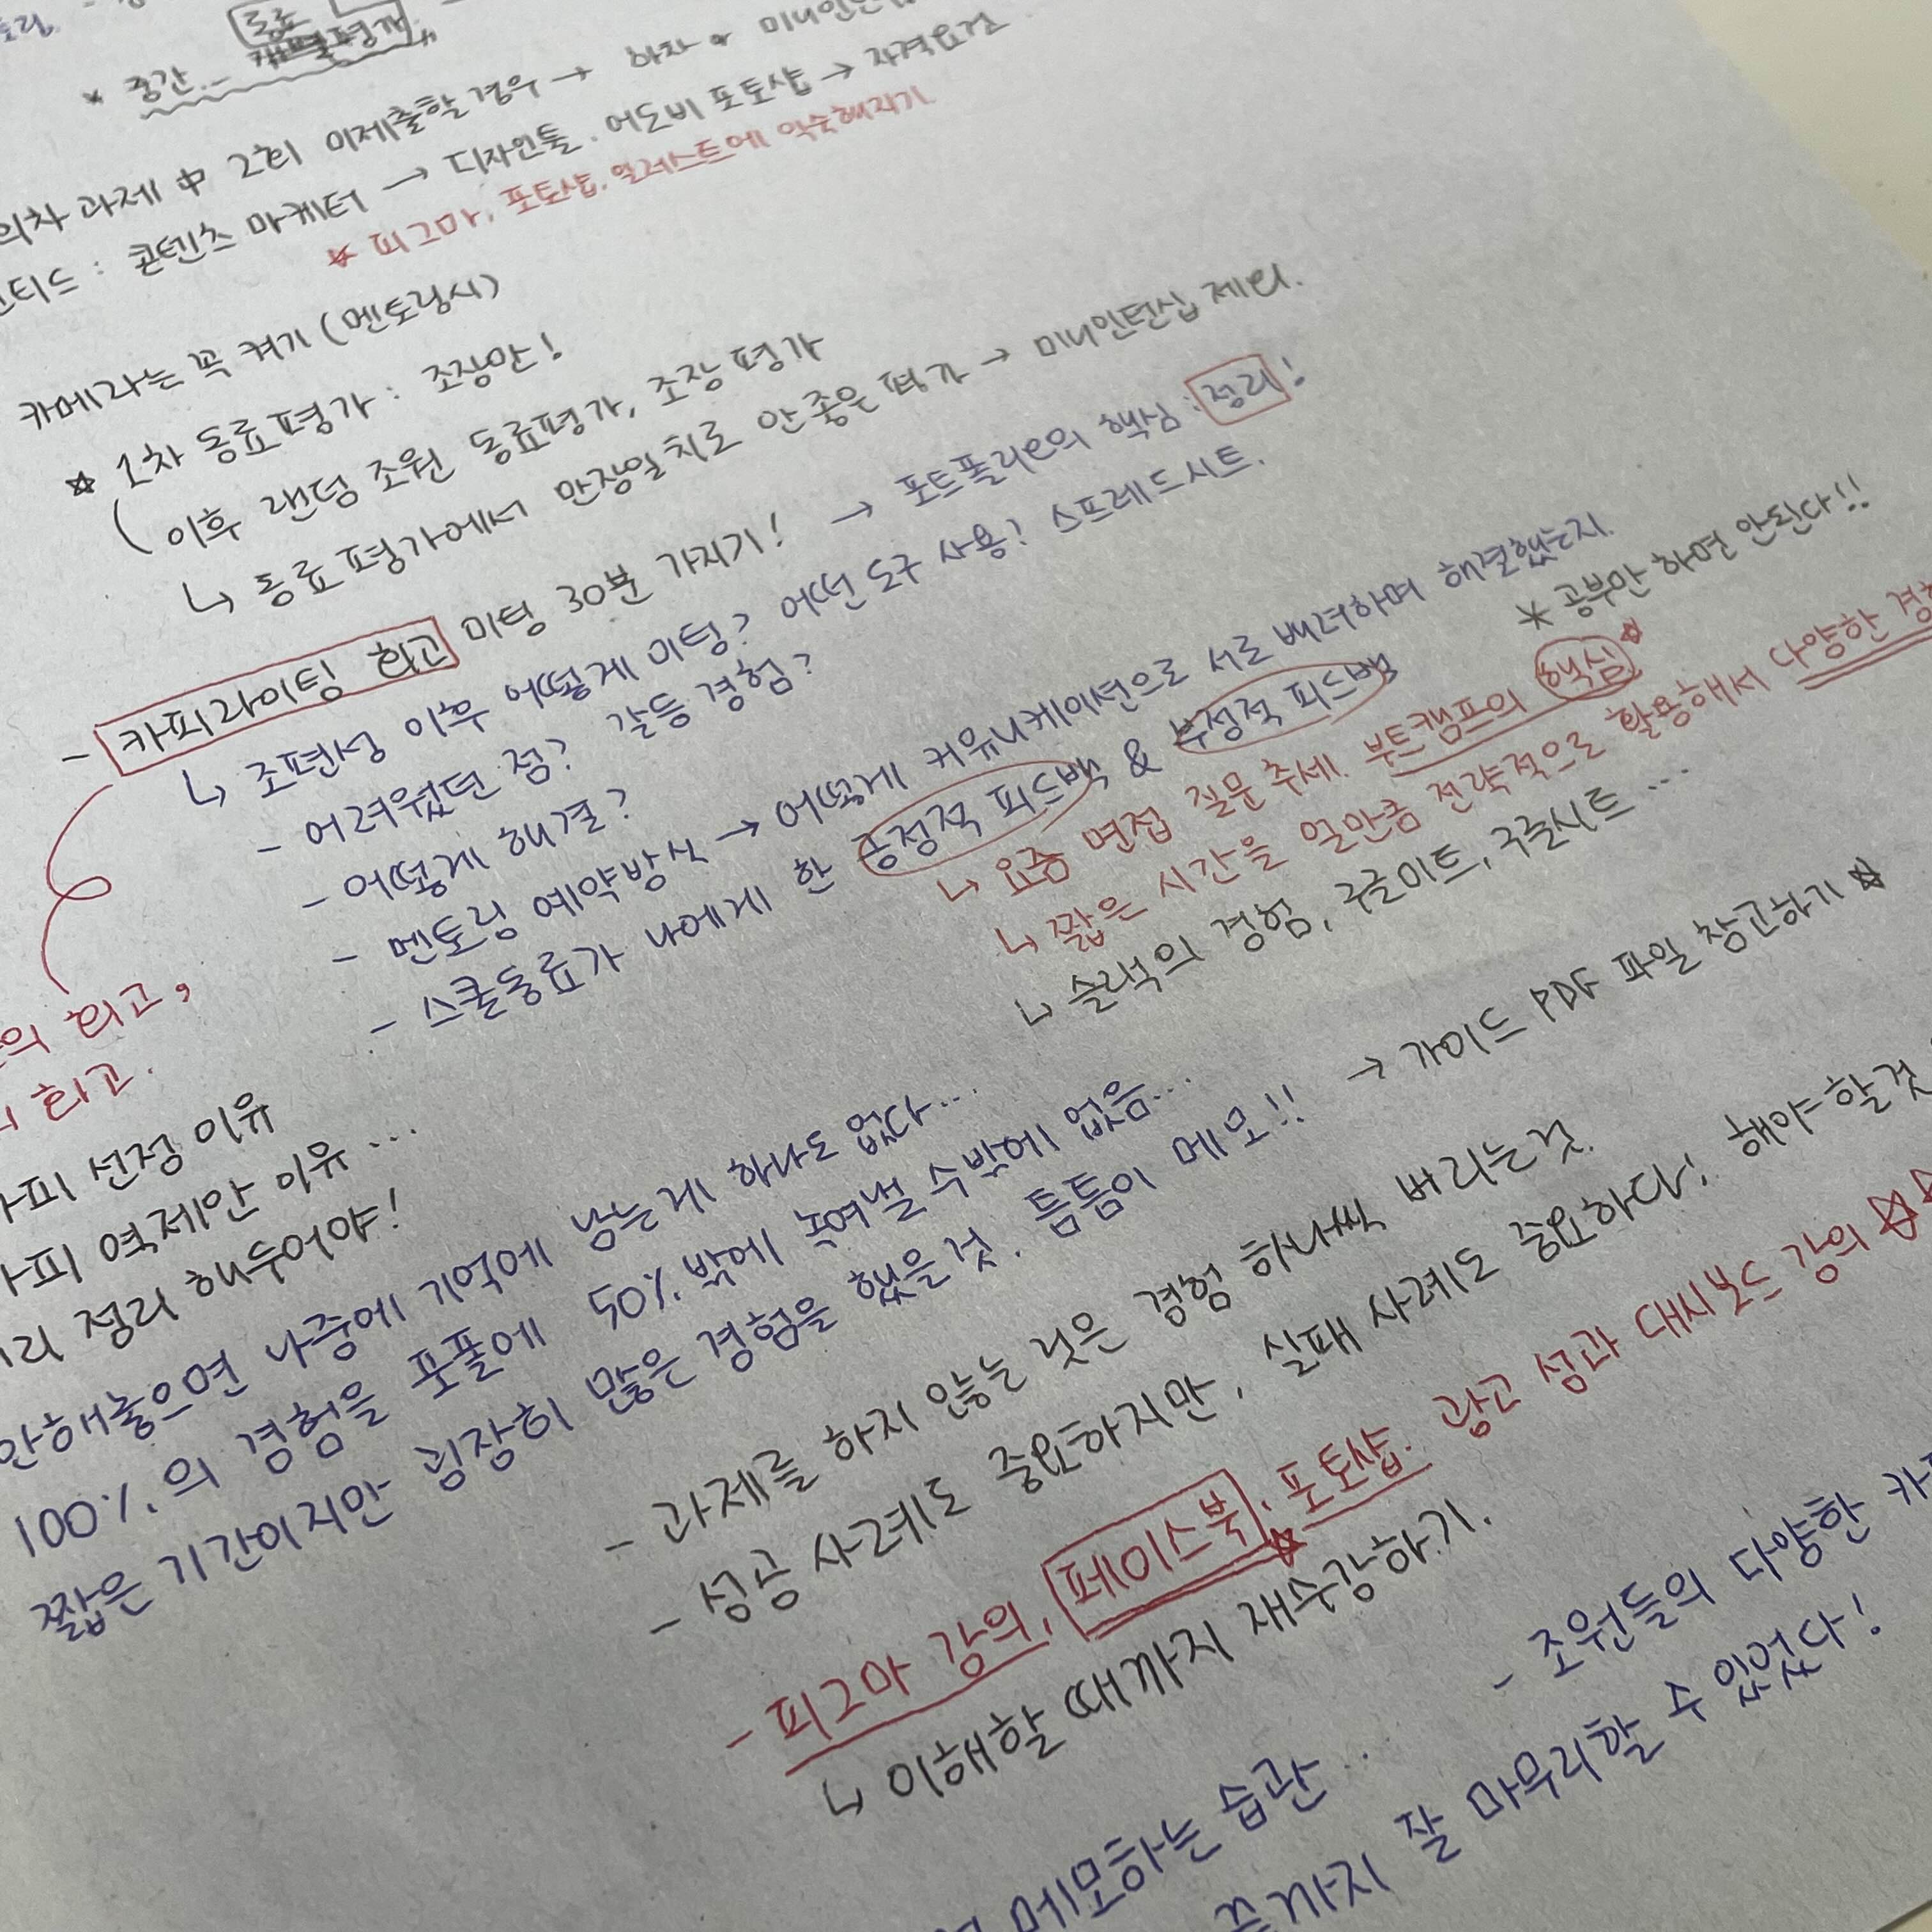 동료
* 중간 -
의차 과제 中 2회 미제출할 경우 → 하차 * 미니인턴십
티드 : 콘텐츠 마케터 → 디자인툴. 어도비 포토샵 → 자격요건
☆ 피그마, 포토샵. 일러스트에 익숙해지기
카메라는 꼭 켜기 (멘토링시)
☆ 1차 동료평가 : 조장만!
( 이후 랜덤 조원 동료평가, 조장 평가
↳ 동료 평가에서 만장일치로 안 좋은 평가 → 미니인턴십 제외.
- 카피라이팅 회고 미팅 30분 가지기! → 포트폴리오의 핵심 : 정리!
↳ 조편성 이후 어떻게 미팅? 어떤 도구 사용? 스프레드시트.
- 어려웠던 점? 갈등 경험?
- 어떻게 해결?
- 멘토링 예약방식 → 어떻게 커뮤니케이션으로 서로 배려하며 해결했는지.
- 스쿨동료가 나에게 한 긍정적 피드백 & 부정적 피드백
* 공부만 하면 안된다!!
↳ 요즘 면접 질문 추세. 부트캠프의 핵심 ☆
↳ 짧은 시간을 얼만큼 전략적으로 활용해서 다양한 경험
↳ 슬랙의 경험, 구글미트, 구글시트 ...
의 회고,
회고.
카피 선정 이유
카피 역제안 이유 ...
정리 해두어야!
안해놓으면 나중에 기억에 남는게 하나도 없다...
100%의 경험을 포폴에 50%밖에 녹여낼 수밖에 없음...
짧은 기간이지만 굉장히 많은 경험을 했을 것. 틈틈이 메모!! → 가이드 PDF 파일 참고하기 ☆
- 과제를 하지 않는 것은 경험 하나씩 버리는것.
- 성공 사례도 중요하지만, 실패 사례도 중요하다! 해야 할것
- 피그마 강의, 페이스북, 포토샵. 광고 성과 대시보드 강의 ☆☆
↳ 이해할 때까지 재수강하기.
- 조원들의 다양한 카피
메모하는 습관...
끝까지 잘 마무리할 수 있었다!